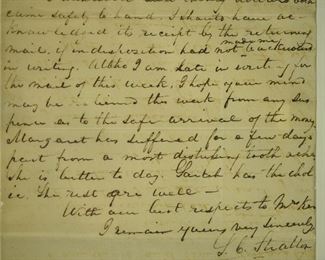 came safely to hand. I should have ac-
knowledged its receipt by the returning
mail, if indisposition had not made me awkward
in writing. Altho I am late in writing in
the mail of this week, I hope your mind
may be relieved this week from any sus
pence as to the safe arrival of the money.
Margaret has suffered for a few days
past from a most disturbing tooth ache
she is better to day. Sarah has the chol
ic. The rest are well —
With our best respects to Mrs
I remain yours very sincerely
S. C. Stratton